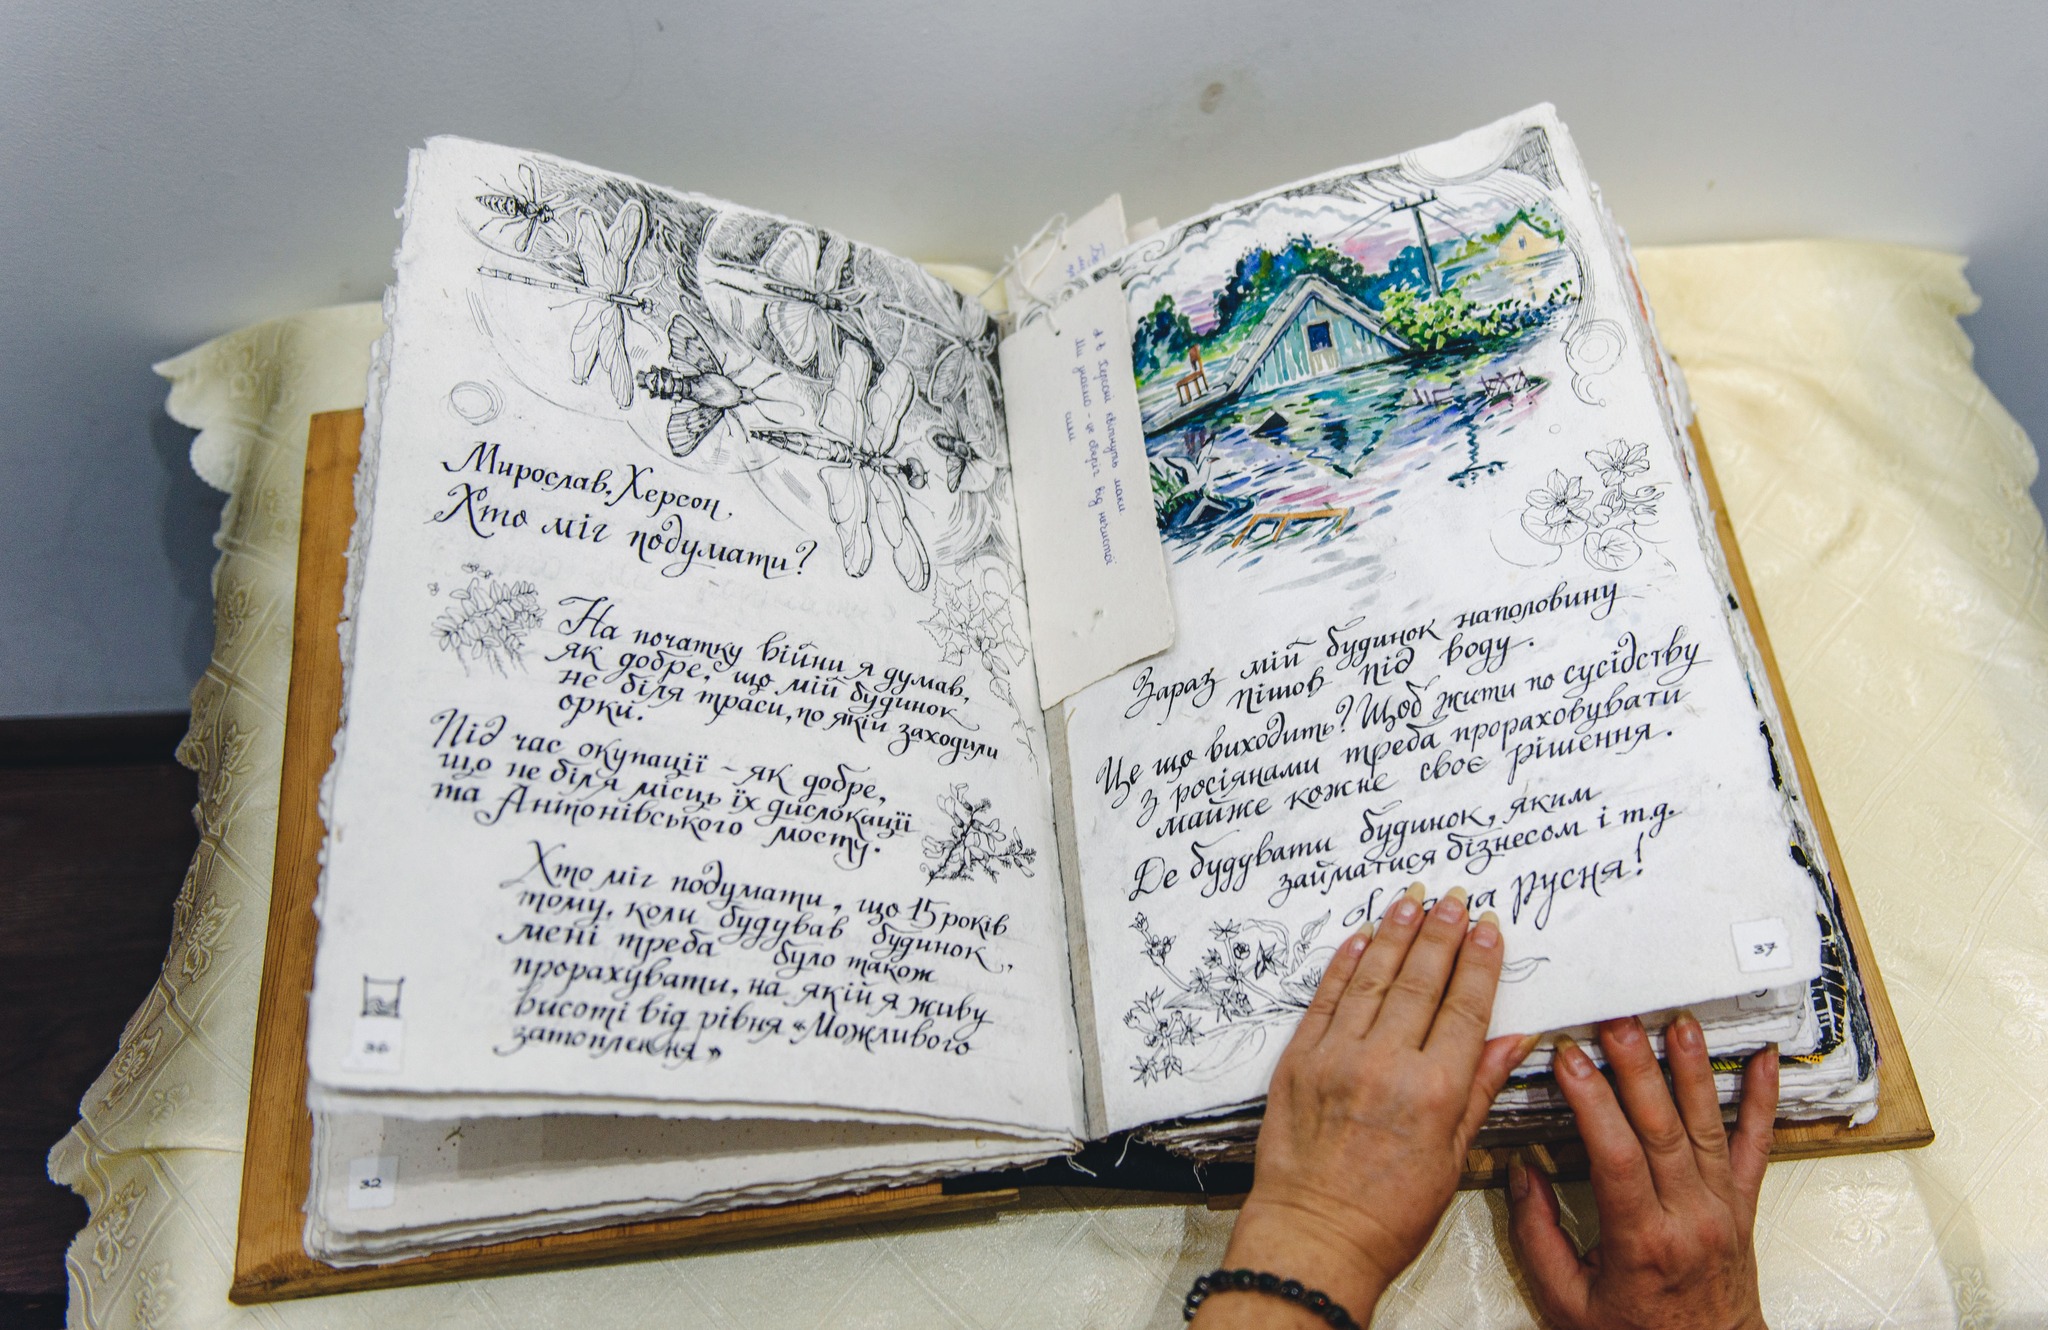 Мирослав, Херсон.
Хто міг подумати?
На початку війни я думав,
як добре, що мій будинок
не біля траси, по якій заходили
орки.
Під час окупації - як добре,
що не біля місць їх дислокації
та Антонівського мосту.
Хто міг подумати, що 15 років
тому, коли будував будинок,
мені треба було також
прорахувати, на якій я живу
висоті від рівня «Можливого
затоплення»
36
32
А в Херсоні квітнуть маки.
Ми знаємо - це оберіг від нечистої
сили
Зараз мій будинок наполовину
пішов під воду.
Це що виходить? Щоб жити по сусідству
з росіянами треба прораховувати
майже кожне своє рішення.
Де будувати будинок, яким
займатися бізнесом і т.д.
русня!
37